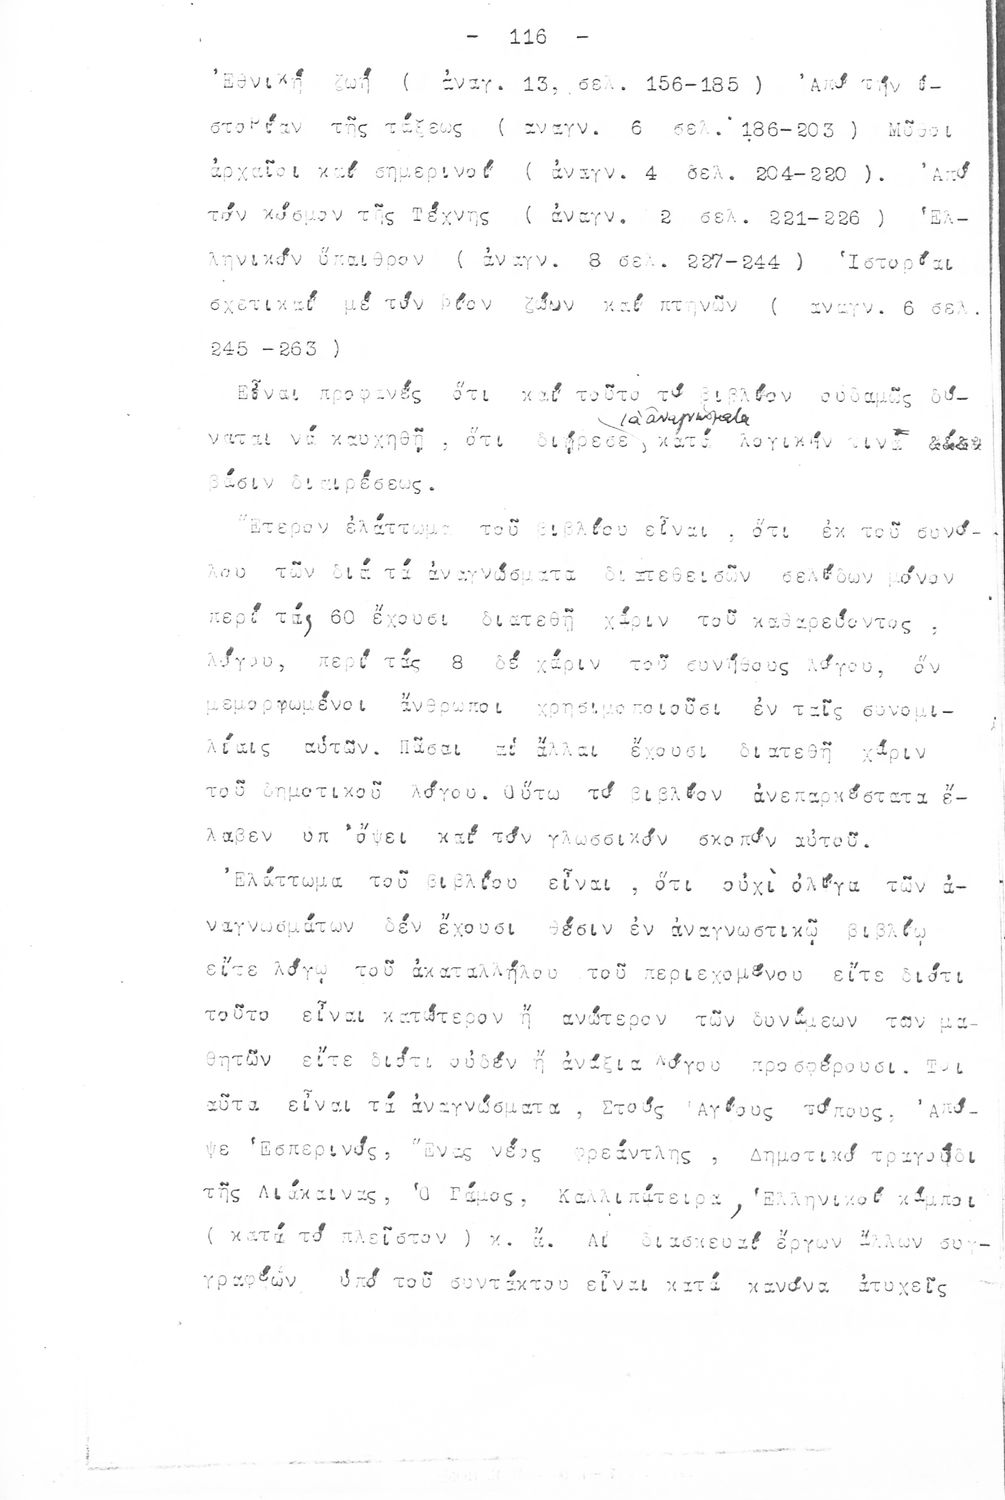 - 116 -
Ἐθνική ζωή ( ἀναγ. 13, σελ. 156-185 ) Ἀπό τήν ἱ-
στορίαν τῆς τάξεως ( αναγν. 6 σελ. 186-203 ) Μῦθοι
ἀρχαῖοι καί σημερινοί ( ἀναγν. 4 σελ. 204-220 ). Ἀπό
τόν κόσμον τῆς Τέχνης ( ἀναγν. 2 σελ. 221-226 ) Ἑλ-
ληνικόν ὕπαιθρον ( ἀναγν. 8 σελ. 227-244 ) Ἱστορίαι
σχετικαί μέ τόν βίον ζώων καί πτηνῶν ( αναγν. 6 σελ.
245 -263 )
Εἶναι προφανές ὅτι καί τοῦτο τό βιβλίον ουδαμῶς δύ-
τά ἀναγνώσματα
ναται νά καυχηθῇ , ὅτι διῄρεσε, κατά λογικήν τινά
βάσιν διαιρέσεως.
Ἕτερον ἐλάττωμα τοῦ βιβλίου εἶναι , ὅτι ἐκ τοῦ συνό-
λου τῶν διά τά ἀναγνώσματα διατεθεισῶν σελίδων μόνον
περί τάς 60 ἔχουσι διατεθῆ χάριν τοῦ καθαρεύοντος ,
λόγου, περί τάς 8 δέ χάριν τοῦ συνήθους λόγου, ὅν
μεμορφωμένοι ἄνθρωποι χρησιμοποιοῦσι ἐν ταῖς συνομι-
λίαις αὐτῶν. Πᾶσαι αἱ ἄλλαι ἔχουσι διατεθῆ χάριν
τοῦ δημοτικοῦ λόγου. Οὕτω τό βιβλίον ἀνεπαρκέστατα ἔ-
λαβεν υπ ὄψει καί τόν γλωσσικόν σκοπόν αὐτοῦ.
Ἐλάττωμα τοῦ βιβλίου εἶναι , ὅτι οὐχὶ ὀλίγα τῶν ἀ-
ναγνωσμάτων δέν ἔχουσι θέσιν ἐν ἀναγνωστικῷ βιβλίῳ
εἴτε λόγῳ τοῦ ἀκαταλλήλου τοῦ περιεχομένου εἴτε διότι
τοῦτο εἶναι κατώτερον ἤ ανώτερον τῶν δυνάμεων των μα-
θητῶν εἴτε διότι οὐδέν ἤ ἀνάξια λόγου προσφέρουσι. Τοι
αῦτα εἶναι τά ἀναγνώσματα , Στούς Ἁγίους τόπους, Ἀπό-
ψε Ἑσπερινός, Ἕνας νέος φρεάντλης , Δημοτικό τραγούδι
τῆς Λιάκαινας, Ὁ Γάμος, Καλλιπάτειρα, Ἑλληνικοί κάμποι
( κατά τό πλεῖστον ) κ. ἄ. Αἱ διασκευαί ἔργων ἄλλων συγ-
γραφέων ὑπό τοῦ συντάκτου εἶναι κατά κανόνα ἀτυχεῖς